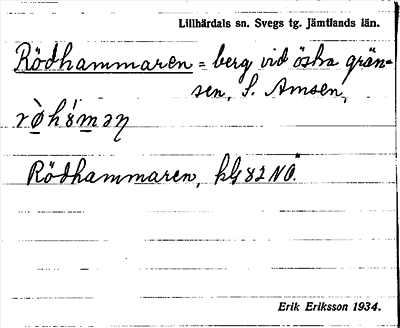 Lillhärdals sn. Svegs tg. Jämtlands län.
Rödhammaren = berg vid östra grän-
sen, S. Amsen,
Rödhammaren, kbl 82 NO.
Erik Eriksson 1934.